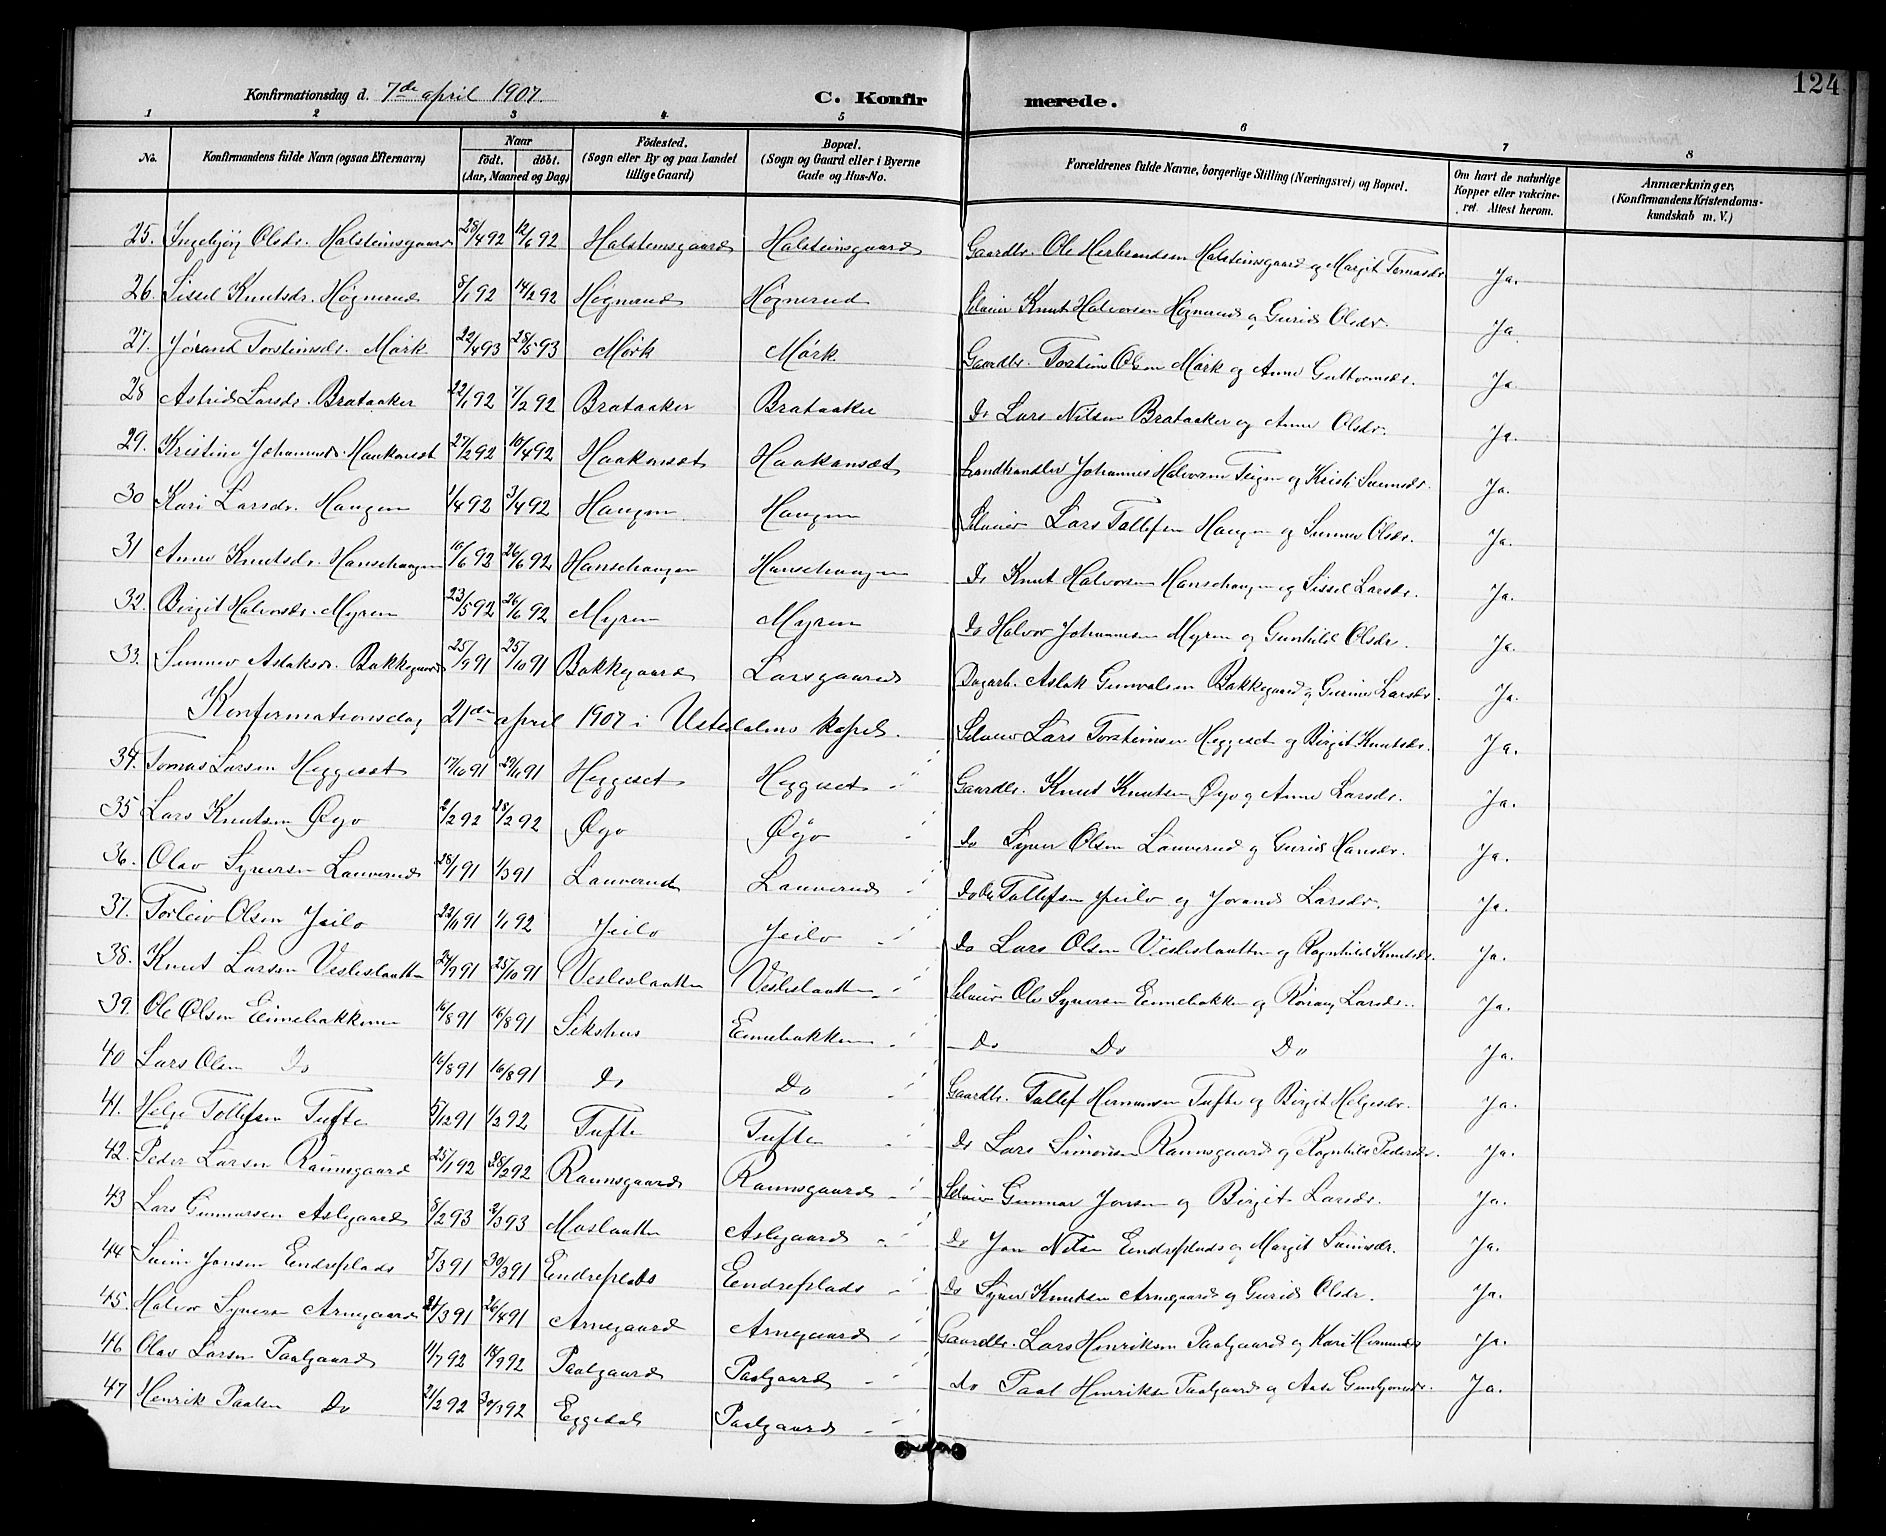 124
Konfirmationsdag d. 7de april 1907. C. Konfirmerede.
1 2 3 4 5 6 7 8
No. Konfirmandens fulde Navn (ogsaa Efternavn) Naar født. døbt. (Aar, Maaned og Dag) Fødested. (Sogn eller By og paa Landet tillige Gaard) Bopæl. (Sogn og Gaard eller i Byerne Gade og Hus-No. Forældrenes fulde Navne, borgerlige Stilling (Næringsvei) og Bopæl. Om havt de naturlige Kopper eller vakcineret. Attest herom. Anmærkninger. (Konfirmandens Kristendomskundskab m. V.)
25. Ingebjøg Olsdr. Halsteinsgaard 28/4 92 12/6 92 Halsteinsgaard Halsteinsgaard Gaardbr. Ole Herbrandsen Halsteinsgaard og Margit Tomasdr. Ja.
26. Sissel Knutsdr. Høgnerud 8/1 92 14/2 92 Høgnerud Høgnerud Selveier Knut Halvorsen Høgnerud og Gurid Olsdr. Ja.
27. Jørand Torsteinsdr. Mørk 22/4 93 28/5 93 Mørk Mørk Gaardbr. Torstein Olsen Mørk og Anne Guttormsdr. Ja.
28 Astrid Larsdr. Brataaker 22/1 92 7/2 92 Brataaker Brataaker do Lars Nilsen Brataaker og Anne Olsdr. Ja.
29. Kristine Johannesdr. Haakonset 27/2 92 10/4 92 Haakonset Haakonset Landhandler Johannes Halvorsen Teigen og Kristi Sveinsdr. Ja.
30 Kari Larsdr. Haugen 1/4 92 3/4 92 Haugen Haugen Selveier Lars Tollefsen Haugen og Sunnev Olsdr. Ja.
31 Anne Knutsdr. Hansehaugen 10/6 92 26/6 92 Hansehaugen Hansehaugen do Knut Halvorsen Hansehaugen og Sissel Larsdr. Ja.
32. Birgit Halvorsdr. Myren 23/5 92 26/6 92 Myren Myren do Halvor Johannesen Myren og Gunhild Olsdr. Ja.
33. Sunnev Aslaksdr. Bakkegaard 25/9 91 25/10 91 Bakkegaard Larsgaard Dagarb. Aslak Gunvalsen Bakkegaard og Gurine Larsdr. Ja.
Konfirmationsdag 21de april 1907 i Ustedalens kapel.
34. Tomas Larsen Heggeset 17/10 91 29/11 91 Heggeset Heggeset Selveier Lars Torsteinsen Heggeset og Birgit Knutsdr. Ja.
35 Lars Knutsen Øyo 2/2 92 28/2 92 Øyo Øyo Gaardbr. Knut Knutsen Øyo og Anne Larsdr. Ja.
36. Olav Syversen Lauverud 28/1 91 1/3 91 Lauverud Lauverud do Syver Olsen Lauverud og Gurid Hansdr. Ja.
37. Torleiv Olsen Jeilo 22/11 91 1/1 92 Jeilo Jeilo do Ole Tollefsen Jeilo og Jorand Larsdr. Ja.
38. Knut Larsen Veslislaatten 24/9 91 25/10 91 Veslislaatten Veslislaatten do Lars Olsen Veslislaatten og Ragnhild Knutsdr. Ja.
39. Ole Olsen Einebakken 16/8 91 16/8 91 Sekshus Einebakken Selveier Ole Syversen Einebakken og Rønaug Larsdr. Ja.
40 Lars Olsen Do 16/8 91 16/8 91 do Do Do Do Do Ja.
41. Helge Tollefsen Tufte 5/12 91 1/2 92 Tufte Tufte Gaardbr. Tollef Hermansen Tufte og Birgit Helgesdr. Ja.
42. Peder Larsen Raunsgaard 25/1 92 28/2 92 Raunsgaard Raunsgaard do Lars Simonsen Raunsgaard og Ragnhild Pedersdr. Ja.
43 Lars Gunnarsen Aslegaard 8/2 93 2/3 93 Moslaatten Aslegaard Selveier Gunnar Jonsen og Birgit Larsdr. Ja.
44 Svein Jonsen Endreplads 5/3 91 30/3 91 Endreplads Eendreplads do Jon Nilsen Eendreplads og Margit Sveinsdr. Ja.
45. Halvor Syversen Arnegaard 21/3 91 26/4 91 Arnegaard Arnegaard do Syver Knutsen Arnegaard og Gurid Olsdr. Ja.
46 Olav Larsen Paalgaard 11/7 92 18/9 92 Paalgaard Paalgaard Gaardbr. Lars Henriksen Paalgaard og Kari Ja.
47 Henrik Paalsen Do 21/2 92 30/3 92 Eggedal Paalgaard do Paal Henriksen Paalgaard og Aase Ja.